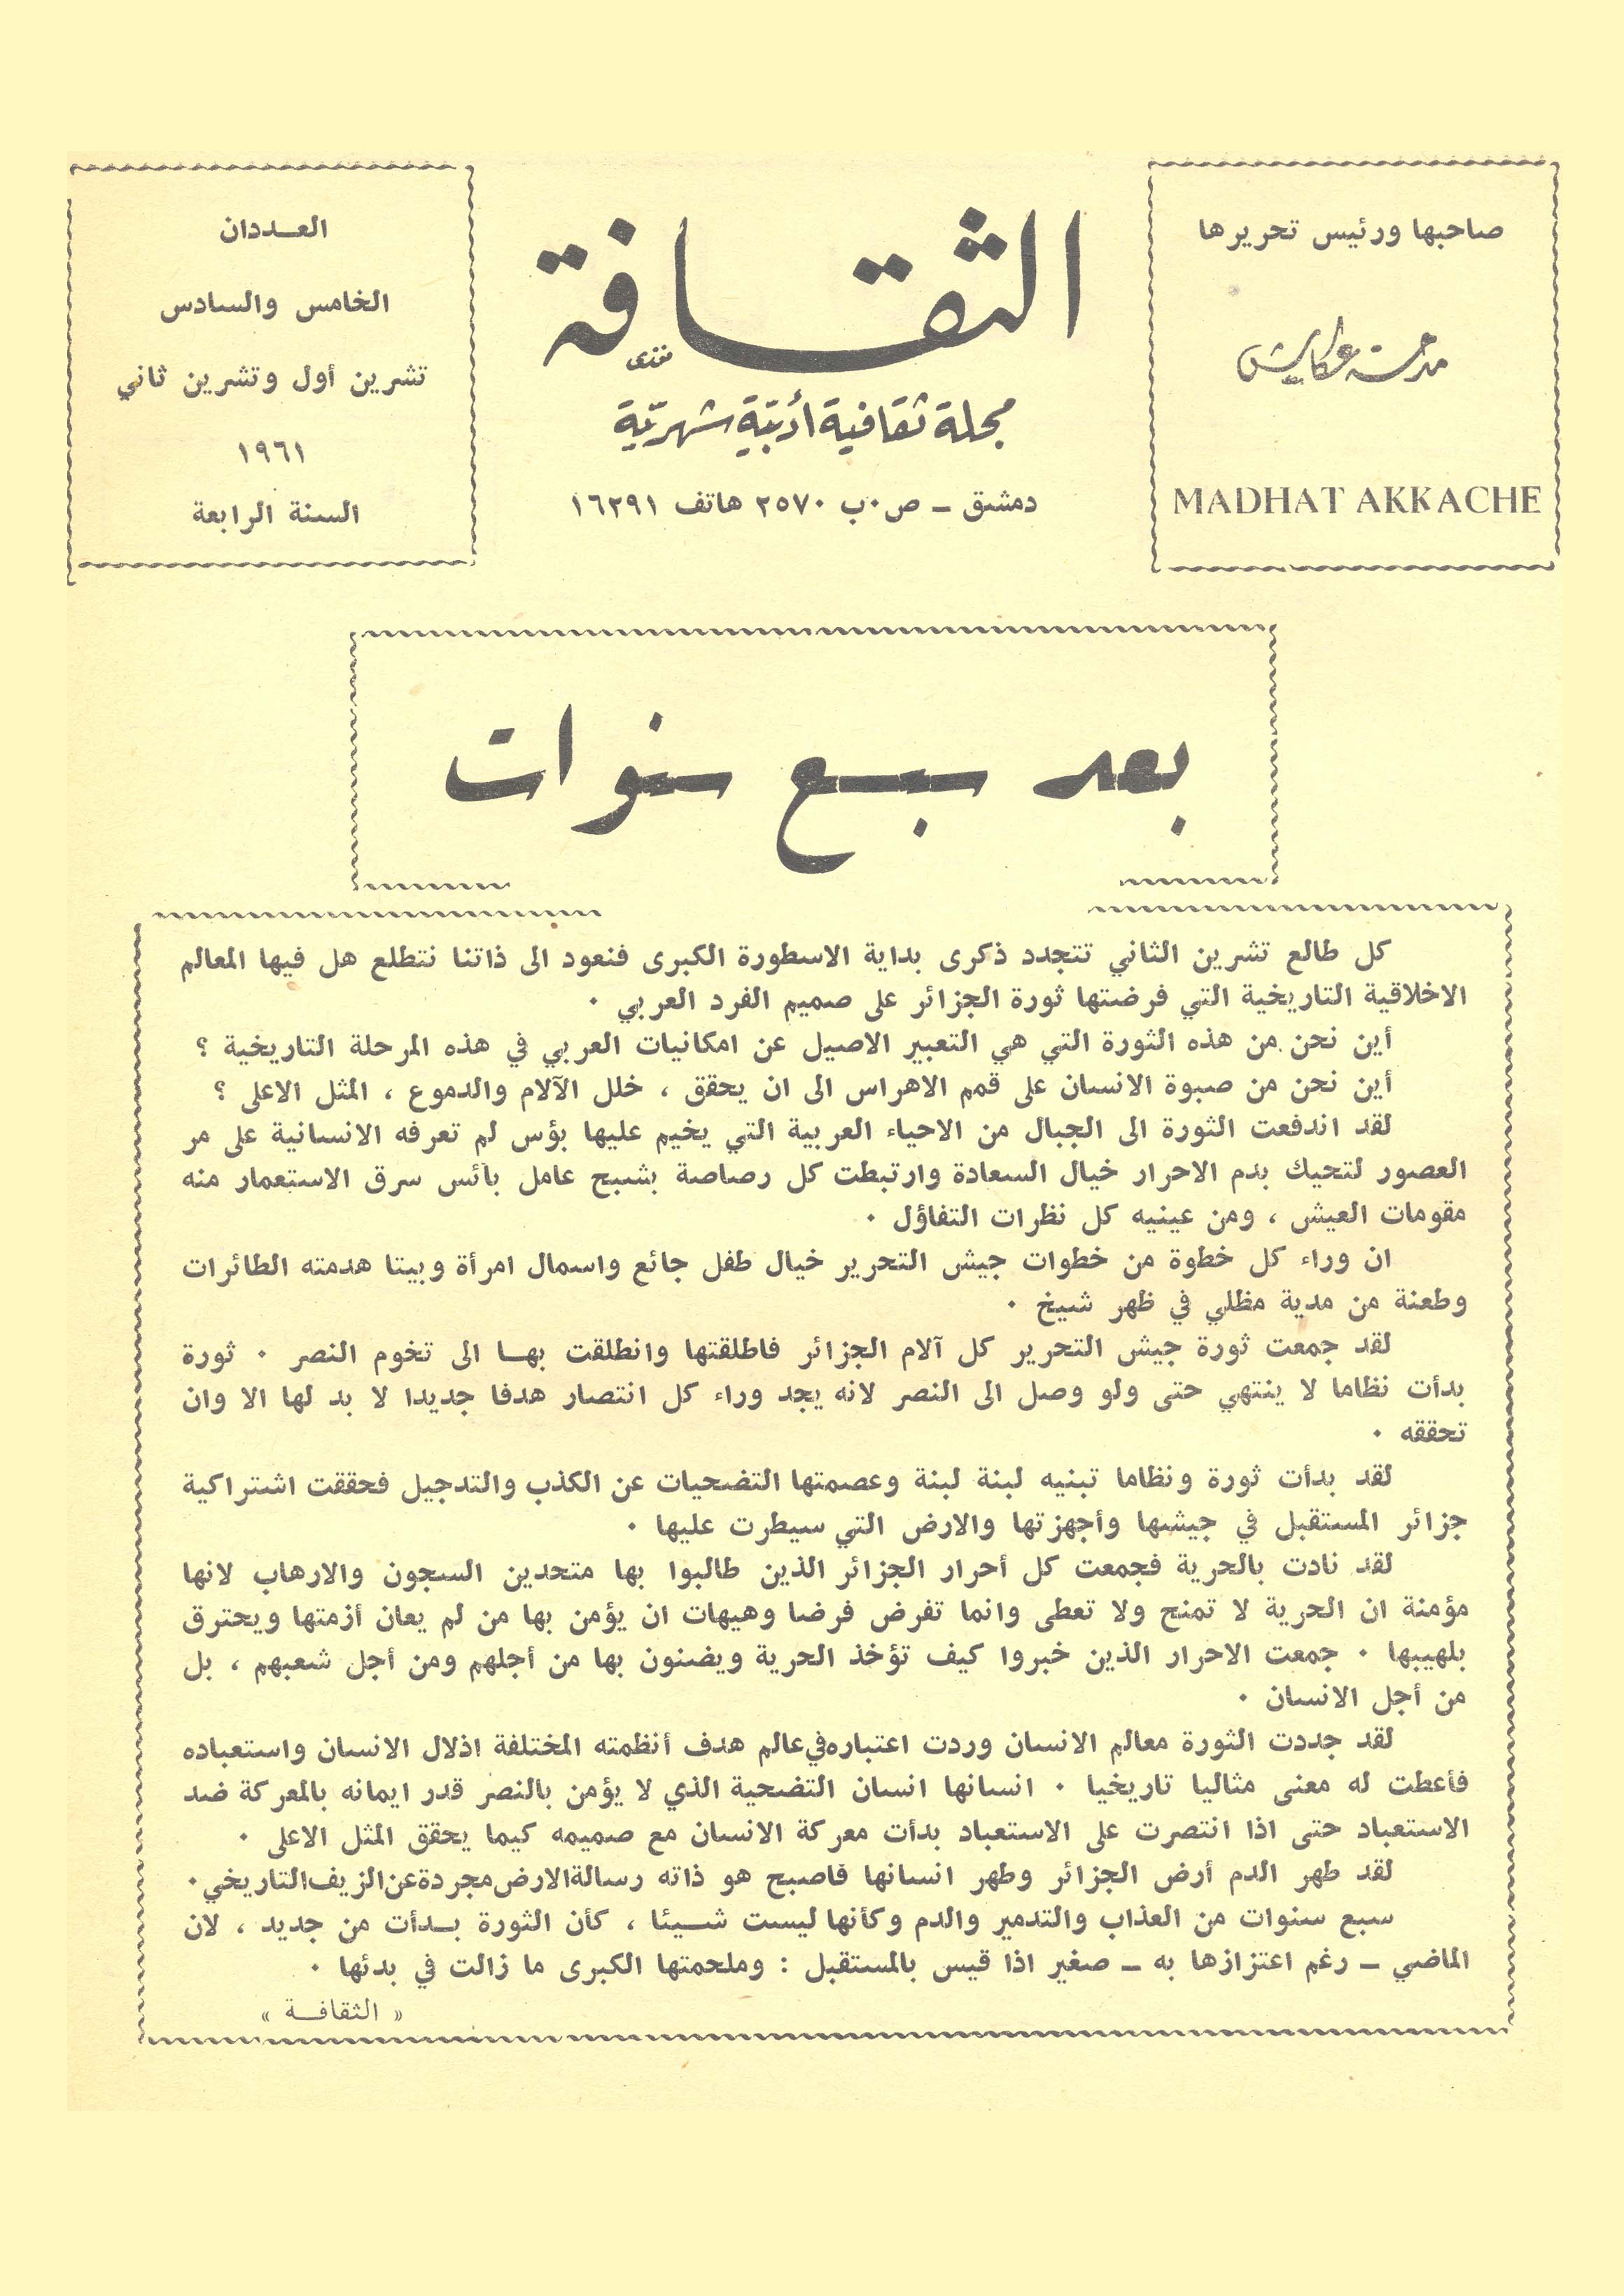 صاحبها ورئيس تحريرها
مدحة عكاش
MADHAT AKKACHE
الثقافة
مجلة ثقافية أدبية شهرية
دمشق ــ ص٠ب ٢٥٧٠ هاتف ١٦٢٩١
العــددان
الخامس والسادس
تشرين أول وتشرين ثاني
١٩٦١
السنة الرابعة
بعد سبع سنوات
كل طالع تشرين الثاني تتجدد ذكرى بداية الاسطورة الكبرى فنعود الى ذاتنا نتطلع هل فيها المعالم
الاخلاقية التاريخية التي فرضتها ثورة الجزائر على صميم الفرد العربي ٠
أين نحن من هذه الثورة التي هي التعبير الاصيل عن امكانيات العربي في هذه المرحلة التاريخية ؟
أين نحن من صبوة الانسان على قمم الاهراس الى ان يحقق ، خلل الآلام والدموع ، المثل الاعلى ؟
لقد اندفعت الثورة الى الجبال من الاحياء العربية التي يخيم عليها بؤس لم تعرفه الانسانية على مر
العصور لتحيك بدم الاحرار خيال السعادة وارتبطت كل رصاصة بشبح عامل بائس سرق الاستعمار منه
مقومات العيش ، ومن عينيه كل نظرات التفاؤل ٠
ان وراء كل خطوة من خطوات جيش التحرير خيال طفل جائع واسمال امرأة وبيتا هدمته الطائرات
وطعنة من مدية مظلي في ظهر شيخ ٠
لقد جمعت ثورة جيش التحرير كل آلام الجزائر فاطلقتها وانطلقت بهــا الى تخوم النصر ٠ ثورة
بدأت نظاما لا ينتهي حتى ولو وصل الى النصر لانه يجد وراء كل انتصار هدفا جديدا لا بد لها الا وان
تحققه ٠
لقد بدأت ثورة ونظاما تبنيه لبنة لبنة وعصمتها التضحيات عن الكذب والتدجيل فحققت اشتراكية
جزائر المستقبل في جيشها وأجهزتها والارض التي سيطرت عليها ٠
لقد نادت بالحرية فجمعت كل أحرار الجزائر الذين طالبوا بها متحدين السجون والارهاب لانها
مؤمنة ان الحرية لا تمنح ولا تعطى وانما تفرض فرضا وهيهات ان يؤمن بها من لم يعان أزمتها ويحترق
بلهيبها ٠ جمعت الاحرار الذين خبروا كيف تؤخذ الحرية ويضنون بها من أجلهم ومن أجل شعبهم ، بل
من أجل الانسان ٠
لقد جددت الثورة معالم الانسان وردت اعتباره في عالم هدف أنظمته المختلفة اذلال الانسان واستعباده
فأعطت له معنى مثاليا تاريخيا ٠ انسانها انسان التضحية الذي لا يؤمن بالنصر قدر ايمانه بالمعركة ضد
الاستعباد حتى اذا انتصرت على الاستعباد بدأت معركة الانسان مع صميمه كيما يحقق المثل الاعلى ٠
لقد طهر الدم أرض الجزائر وطهر انسانها فاصبح هو ذاته رسالة الارض مجردة عن الزيف التاريخي ٠
سبع سنوات من العذاب والتدمير والدم وكأنها ليست شــيئا ، كأن الثورة بــدأت من جديد ، لان
الماضي ــ رغم اعتزازها به ــ صغير اذا قيس بالمستقبل : وملحمتها الكبرى ما زالت في بدئها ٠
« الثقافــة »